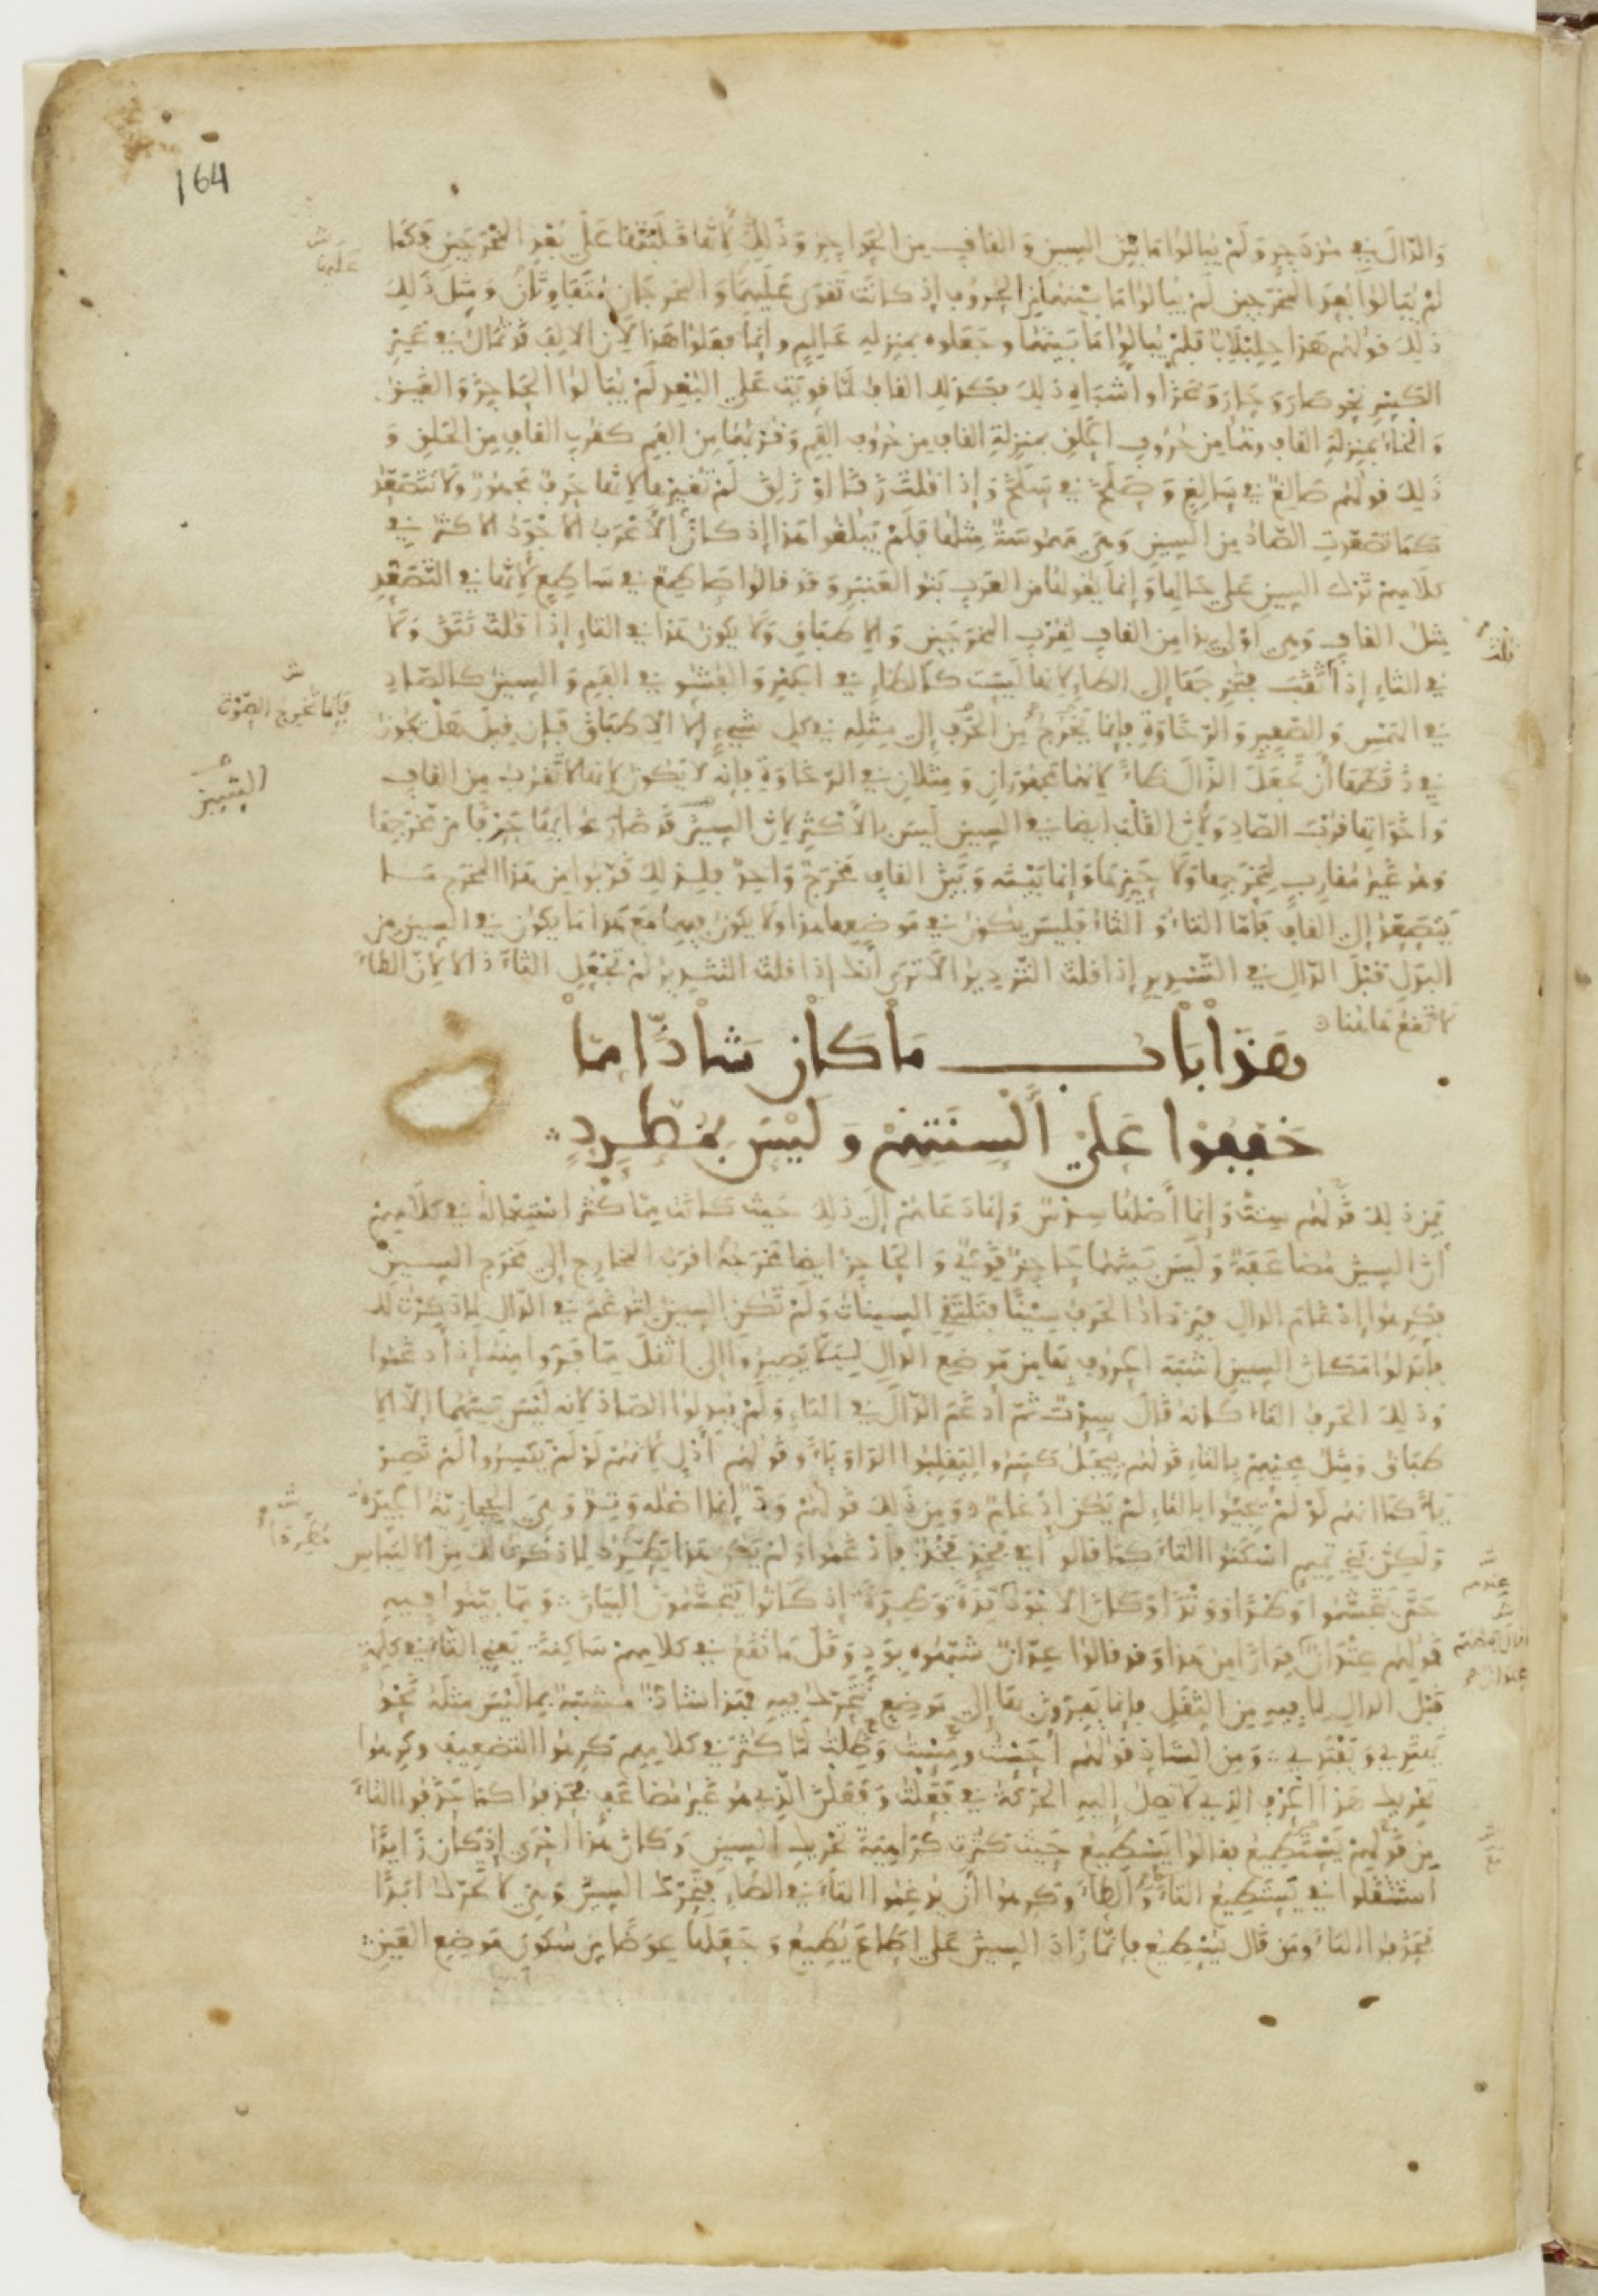 164
وَالدّالَ في مزدَجرٍ وَلَمْ يُبالُوا مَا بَيْنَ السِينِ وَالقافِ مِنَ الحَوَاجِزِ وَذَلِكَ لأَنَّها قَلَبَتْها عَلَى بُعْدِ المَخْرَجَيْنِ فكمَا
لَمْ يُبَالُوا بُعْدَ المَخْرَجينِ لَمْ يُبالُوا مَا بَيْنهُمَا مِنَ الحُرُوفِ إذْ كانَتْ تَقْوَى عَلَيهَا وَالمَخرَجَانِ مُتَفَاوِتَانِ وَمِثْلُ ذَلِكَ
ذلِكَ قولهُم هَذا حِلِبْلَابٌ فَلَمْ يُبالُوا مَا بَيْنَهُمَا وجَعَلوه بمنزِلةِ عَالِمٍ وإنّمَا فَعَلوُا هَذا لأنّ الالِفَ قَدْ تُمَالُ في غَيرِ
الكَسْرِ نَحو صَارَ وَحَارَ وَغزَا واشبَاهِ ذلِكَ فكذلِكَ القافُ لَمّا قَوِيَتْ عَلَى البُعْدِ لَمْ يُبَالُوا الحَاجِزَ وَالغَينُ
وَالخاءُ بمَنزِلَةِ القافِ وهُمَا من حُرُوفِ الحَلْقِ بمنزِلَةِ القافِ مِن حُرُوفِ الفَمِ وَقُرْبُهُمَا مِنَ الفَمِ كقُرْبِ القَافِ مِنَ الحَلْقِ وَ
ذَلِكَ قولهُم صَالِغٌ في سَالِغٍ وَصَلَخَ في سَلَخَ وَإذَا قلتَ زَقَا اوْ زَلِقَ لَمْ تُغَيّرها لانّها حَرفٌ مَجهُورٌ ولا تَتَصَعَّدُ
كَمَا تصَعّدَتِ الصّادُ مِنَ السِينِ وَهيَ مَهمُوسَةٌ مِثْلُهَا فلَمْ يَبْلُغُوا هَذا إذ كانَ الأعْرَبُ الأجْوَدُ الاكثرُ في
كلامِهِمْ تَرْكَ السِينِ عَلى حَالِها وَإنّمَا يَقُولُها مِنَ العَرَبِ بَنُو العَنبَرِ وَقَد قالُوا صَاطِعٌ في سَاطِعٍ لأَنّها في التّصَعّدِ
مِثلُ القافِ وَهِيَ أوْلَى بِذا مِنَ القَافِ لِقُرْبِ المَخْرَجَيْنِ وَالِاطبَاقِ وَلَا يَكونُ هَذا في التاءِ إذَا قُلتَ نَتَقَ وَلَا
في الثاءِ إذا ثَقَبَ فتُخْرِجهَا إلى الظاءِ لانها ليْسَت كالظاءِ في الجَهْرِ وَالفُشُوِّ في الفَمِ وَالسِينُ كالصّادِ
في الهَمْسِ وَالصَّفِيرِ وَالرّخَاوَةِ فإنمَا تُخْرَجُ مِنَ الحَرْفِ إلى مِثْلِهِ في كلِّ شَيءٍ إلا الِاطبَاقَ فَإن قِيلَ هَل يجُوزُ
في ذَقطَهَا أنْ تجْعَلَ الذّالَ ظاءً لانهُمَا مَجهُورَانِ وَمِثلانِ في الرّخَاوَةِ فإنّه لا يَكونُ لانها لا تَقرُبُ مِنَ القافِ
وَاخَوَاتِها قُرْبَ الصّادِ وَلأنّ القَلْبَ ايضًا في السِينِ لَيسَ بالأَكثَرِ لانّ السِينَ قَد ضَارَعُوا بِهَا حَرْفًا مِن مَخْرَجِها
وَهْوَ غَيرُ مُقَارِبٍ لمَخْرَجِها وَلا حَيِّزِهَا وَإنّمَا بَيْنَهُ وَبَيْنَ القَافِ مَخْرَجٌ وَاحِدٌ فلذلِكَ قَرَّبُوا مِن هَذا المخرَج مَا
يَتَصَعّدُ إلى القافِ فَأمّا التاءُ وَالثاءُ فليسَ يَكونُ في مَوضِعِهِما هذا ولا يَكونُ فيهمَا مَعَ هَذا مَا يَكونُ في السِينِ مِن
البَدَلِ قبْلَ الدّالِ في التّسْدِيرِ إذا قلتَ التَّزدِيرُ الا تَرَى أنّكَ إذا قلتَ التَّثْدِيرُ لَمْ تجْعَلِ الثاءَ ذالا لانّ الظاءَ
لا تَقعُ هَاهُنا
هَذَا بَابُ مَا كَانَ شَاذًّا مِمّا
خَفَّفُوا عَلَى أَلْسِنَتِهِمْ وَلَيْسَ بمُطَّرِدٍ
فمِن ذلِكَ قَولهُم سِتٌّ وَإنما أصْلُها سِدْسٌ وَإنّمَا دَعَاهُم إلى ذلكَ حَيثُ كانَتْ مِمّا كثرَ اسْتِعْمَالُهُ في كلَامِهِمْ
أنّ السِينَ مُضاعَفَةٌ وَلَيْسَ بَيْنَهُمَا حَاجِزٌ قَوِيٌّ وَالحَاجِزُ ايضا مَخْرَجُهُ اقرَبُ المخارِجِ إلى مَخْرَجِ السِينِ
فكَرِهُوا إدْغامَ الدالِ فيَزْدَادُ الحَرفُ سِينًا فتَلْتَقي السِينَاتُ وَلَمْ تَكنِ السِينُ لِتُدْغَمَ في الدّالِ لمَا ذكَرْتُ لكَ
فأبْدَلُوا مَكانَ السِينِ أشْبَهَ الحُرُوفِ بهَا مِن مَوْضِعِ الدّالِ لِئَلّا يَصِيرُوا إلى اثْقلَ مِمّا فَرُّوا مِنهُ إذَا أَدْغَمُوا
وَذلِكَ الحَرفُ التاءُ كانهُ قالَ سِدْتٌ ثمّ أدْغَمَ الدّالَ في التاءِ وَلَمْ يُبدِلوُا الصّادَ لانه لَيْسَ بَيْنَهُمَا إلّا الِا
طبَاقُ وَمِثلُ مجِيئِهِمْ بِالتاءِ قَولهُم يِيجَلُ كسَرُوا لتنقَلِبَ الوَاوُ يَاءً وَقَولهُم أَدْلٍ لأَنّهُمْ لَوْ لَمْ يَكسِرُوا لَمْ تَصِرْ
يَاءً كمَا انّهُم لَوْ لَمْ يجِيئُوا بالتاءِ لَمْ يَكن إدْغَامٌ وَمِن ذَلِكَ قَولهُمْ وَدٌّ إنّما اصْلُه وَتِدٌ وَهيَ الحِجَازِيَّةُ الجَيّدَةُ
وَلكِنّ بَنِي تَمِيمٍ اسْكَنُوا التّاءَ كمَا قالوا في فَخِذٍ فَخْذٌ فأدْغَمُوا وَلَمْ يَكُن هَذا يَطّرِدُ لِمَا ذكَرْتُ لكَ مِن الِالتِبَاسِ
حَتّى تَجَشَّمُوا وَطْدًا وَوَتْدًا وَكانَ الاجْوَدُ تِدَةً وَطِدَةً إذ كانُوا يَتَجَشَّمُونَ البَيَانَ وَمِمّا بَيَّنُوا فِيهِ
قَولهُم عِتْدَانٌ فِرَارًا مِن هَذا وَقَد قالوُا عِدّانٌ شَبَّهُوه بوَدٍّ وَقَلّ مَا تَقَعُ في كلامِهِمْ سَاكِنَةً يَعنِي التّاءَ في كَلِمَةٍ
قَبْلَ الدالِ لِمَا فِيهِ مِنَ الثِّقَلِ فإنّما يَفِرّونَ بهَا إلى مَوْضِعٍ تَتَحَرَّكُ فِيهِ فهَذا شاذٌّ مُشَبَّهٌ بِمَا لَيْسَ مِثلَهُ نَحْوَ
يَهتَدِي وَيَقْتَدِي وَمِنَ الشاذِ قَولهُم أحَسْتُ ومَسْتُ وَظَلتُ لمّا كثرَ في كلَامِهِم كَرِهُوا التضْعِيفَ وكَرِهوا
تحْرِيكَ هَذا الحَرْفِ الذِي لَا تَصِلُ إلَيْهِ الحَرَكَةُ في فَعَلْتُ وَفَعَلْنَ الّذِي هُوَ غَيرُ مُضاعَفٍ فحَذَفُوا كمَا حَذَفُوا التاءَ
مِن قَولِهِمْ يَسْتَطِيعُ فقالوُا يَسْطِيعُ حَيثُ كثرَت كرَاهِيَةَ تحرِيكِ السِينِ وَكانَ هَذا احْرَى إذ كانَ زَايدًا
استثقلوُا في يَسْتَطِيعُ التاءَ وَالطاءَ وَكرِهُوا أنْ يُدْغِمُوا التاءَ في الطاءِ فتُحَرَّكَ السِينُ وَهيَ لا تُحَرَّكُ ابَدًا
فحَذَفُوا التاءَ ومَن قالَ يُسْطِيعُ فإنّمَا زَادَ السِينَ عَلى اطاعَ يُطِيعُ وَجَعَلَهَا عِوَضًا مِن سُكونِ مَوْضِعِ العَينِ
عَلَيْهَا
فَإِنّمَا تُخْرِجُ الصَّوْتَ